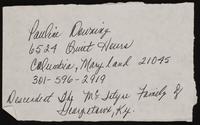 Pauline Downing
6524 Quiet Hours
Columbia, Maryland 21045
301-596-2919
Descendent of McIntyre Family of
Georgetown, Ky.